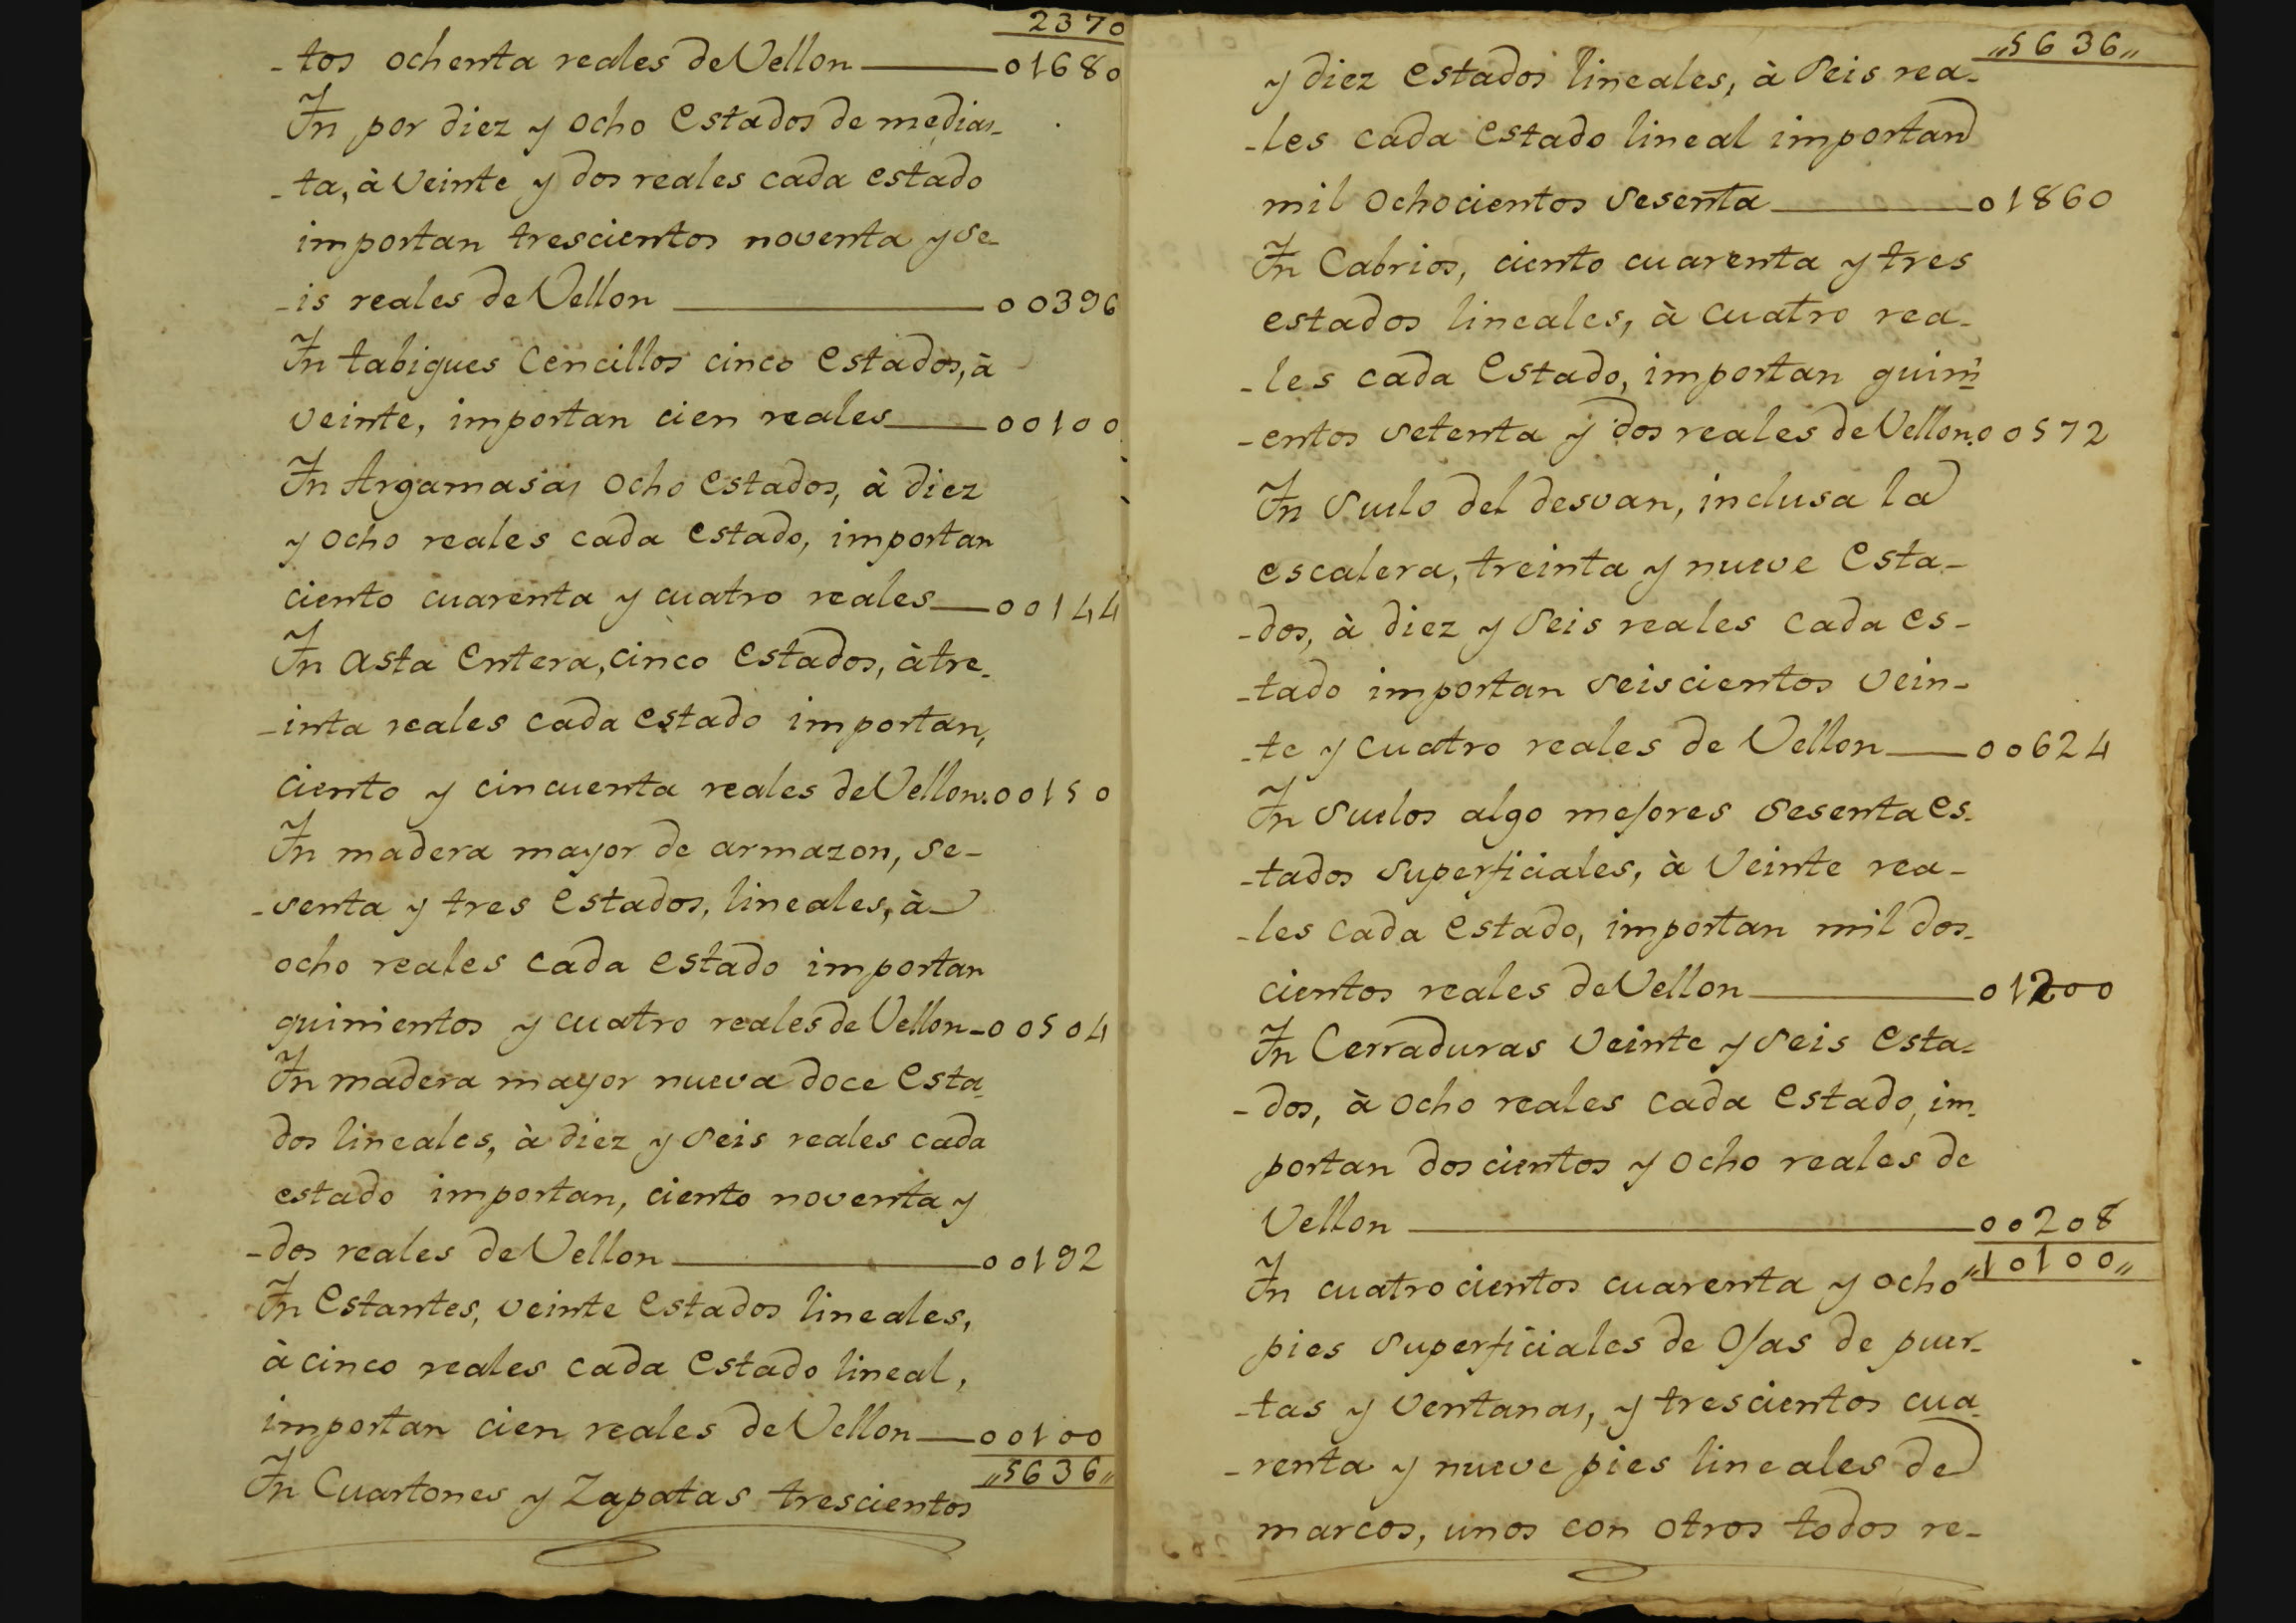 2370
-tos ochenta reales de Vellon ——— 01680
Ĩn por diez y ocho estados de medias-
-ta, à veinte y dos reales cada estado
importan trescientos noventa y se-
-is reales de Vellon ——— 00396
Ĩn tabigues Cencillos cinco estados, à
veinte, importan cien reales ——— 00100
Ĩn Argamasas ocho estados, à diez
y ocho reales cada estado, importan
ciento cuarenta y cuatro reales ——— 00144
Ĩn asta entera, cinco estados, à tre-
-inta reales cada estado importan,
ciento y cincuenta reales de Vellon. 00150
Ĩn madera mayor de armazon, se-
-senta y tres estados, lineales, à
ocho reales cada estado importan
quinientos y cuatro reales de Vellon - 00504
Ĩn madera mayor nueva doce esta-
dos lineales, à diez y seis reales cada
estado importan, ciento noventa y
-dos reales de Vellon ——— 00192
Ĩn Estantes, veinte estados lineales,
à cinco reales cada estado lineal,
importan cien reales de Vellon ——— 00100
„5636„
Ĩn Cuartones y Zapatas trescientos
„5636„
y diez estados lineales, à seis rea-
-les cada estado lineal importan
mil ochocientos sesenta ——— 01860
Ĩn Cabrios, ciento cuarenta y tres
estados lineales, à cuatro rea-
-les cada estado, importan quini-
-entos setenta y dos reales de Vellon. 00572
Ĩn suelo del desvan, inclusa la
escalera, treinta y nueve esta-
-dos, à diez y seis reales cada es-
-tado importan seiscientos vein-
-te y cuatro reales de Vellon ——— 00624
Ĩn suelos algo mejores sesenta es-
-tados superficiales, à veinte rea-
-les cada estado, importan mil dos-
cientos reales de Vellon ——— 01200
Ĩn Cerraduras veinte y seis esta-
-dos, à ocho reales cada estado, im-
portan doscientos y ocho reales de
Vellon ——— 00208
„10100„
Ĩn cuatrocientos cuarenta y ocho
pies superficiales de ojas de puer-
-tas y ventanas, y trescientos cua-
-renta y nueve pies lineales de
marcos, unos con otros todos re-